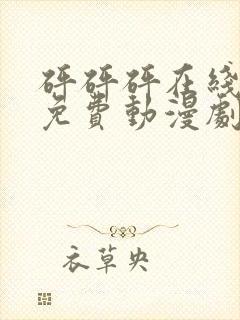 砰砰砰在线
免費動漫劇
衣草央